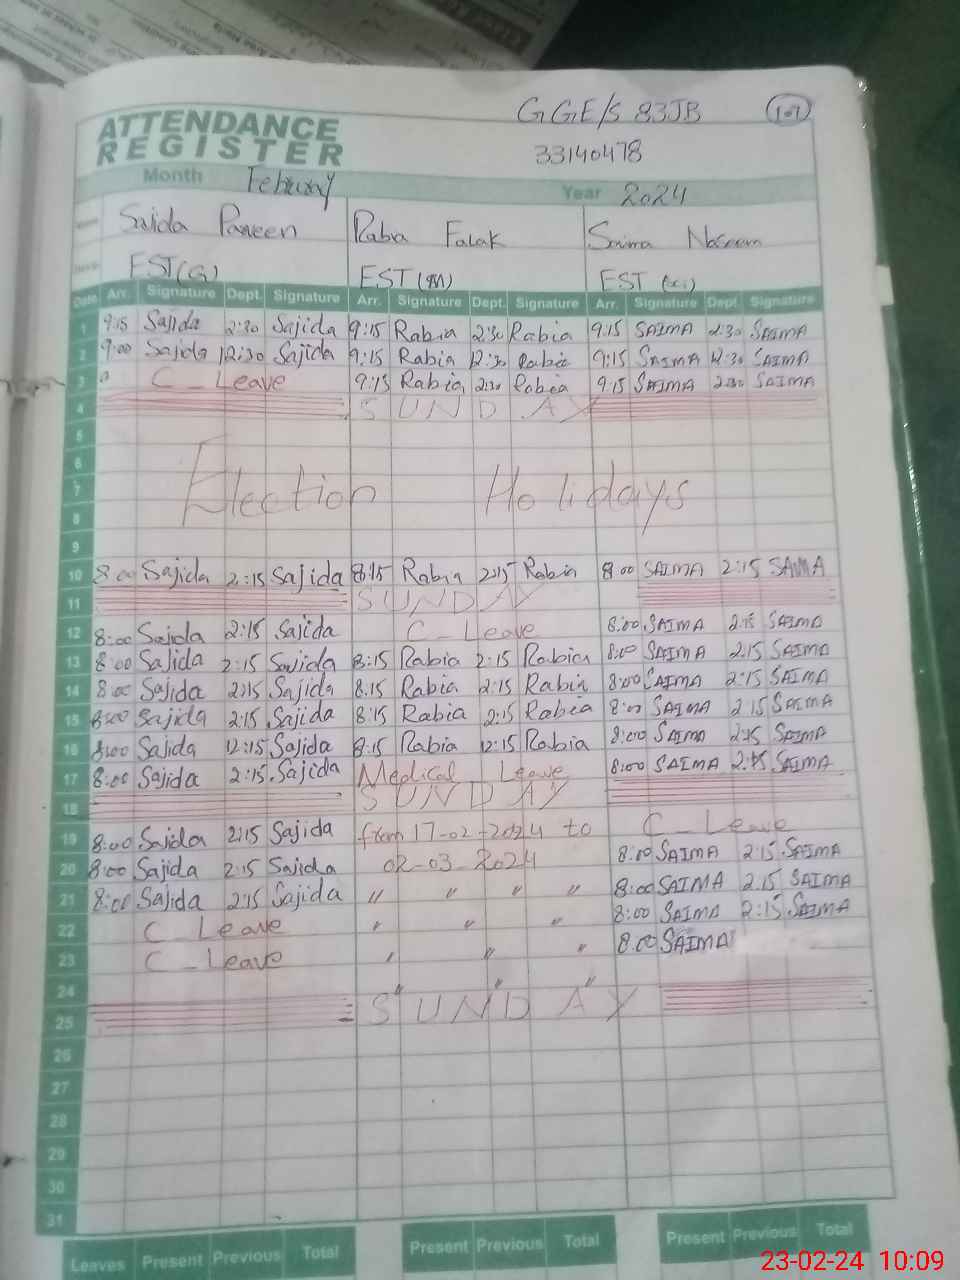 GGE/S 83JB 101
ATTENDANCE
REGISTER
33140478
Month February Year 2024
Sajida Parveen Rabia Falak Saima Nasreem
EST (G) EST
EST
Date Arr. Signature Dept. Signature Arr. Signature Dept. Signature Arr. Signature Dept. Signature
1 9:15 Sajida 2:30 Sajida 9:15 Rabia 2:30 Rabia 9:15 SAIMA 2:30 SAIMA
2 9:00 Sajida 12:30 Sajida 9:15 Rabia 12:30 Rabia 9:15 SAIMA 12:30 SAIMA
3 C-Leave 9:15 Rabia 2:30 Rabia 9:15 SAIMA 2:30 SAIMA
4 SUNDAY
5
6
7 Election Holidays
8
9
10 8:00 Sajida 2:15 Sajida 8:15 Rabia 2:15 Rabia 8:00 SAIMA 2:15 SAIMA
11 SUNDAY
12 8:00 Sajida 2:15 Sajida C-Leave 8:00 SAIMA 2:15 SAIMA
13 8:00 Sajida 2:15 Sajida 8:15 Rabia 2:15 Rabia 8:00 SAIMA 2:15 SAIMA
14 8:00 Sajida 2:15 Sajida 8:15 Rabia 2:15 Rabia 8:00 SAIMA 2:15 SAIMA
15 8:00 Sajida 2:15 Sajida 8:15 Rabia 2:15 Rabia 8:00 SAIMA 2:15 SAIMA
16 8:00 Sajida 12:15 Sajida 8:15 Rabia 12:15 Rabia 8:00 SAIMA SAIMA
17 8:00 Sajida 2:15 Sajida Medical Leave 8:00 SAIMA 2:15 SAIMA
18 SUNDAY
19 8:00 Sajida 2:15 Sajida from 17-02-2024 to C-Leave
20 8:00 Sajida 2:15 Sajida 02-03-2024 8:00 SAIMA 2:15 SAIMA
21 8:00 Sajida 2:15 Sajida " " " " 8:00 SAIMA 2:15 SAIMA
22 C-Leave " " " 8:00 SAIMA 2:15 SAIMA
23 C-Leave " " " 8:00 SAIMA
24 " " "
25 SUNDAY
26
27
28
29
30
31
Leaves Present Previous Total Present Previous Total Present Previous Total
23-02-24 10:09